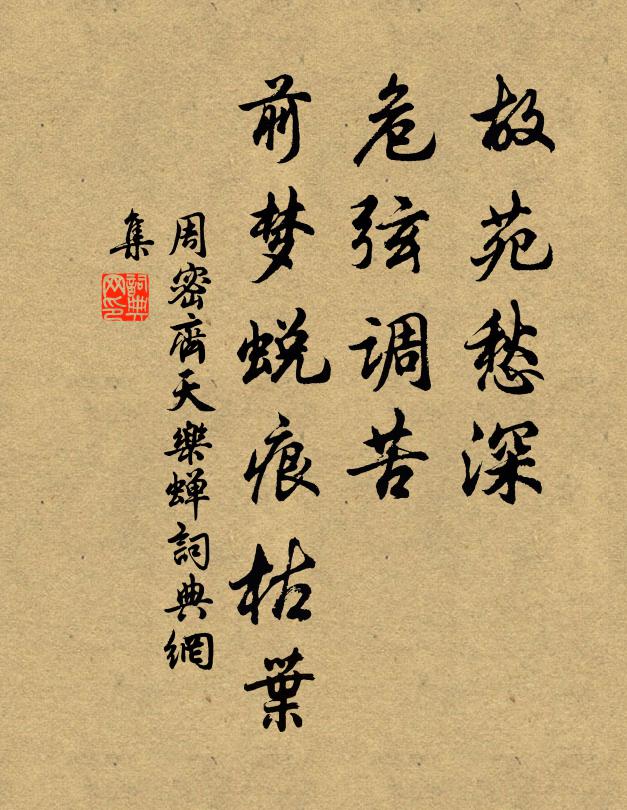 故苑愁深
危弦调苦
前梦蜕痕枯葉
周密齊天樂蝉詞典網
集
詞典网印